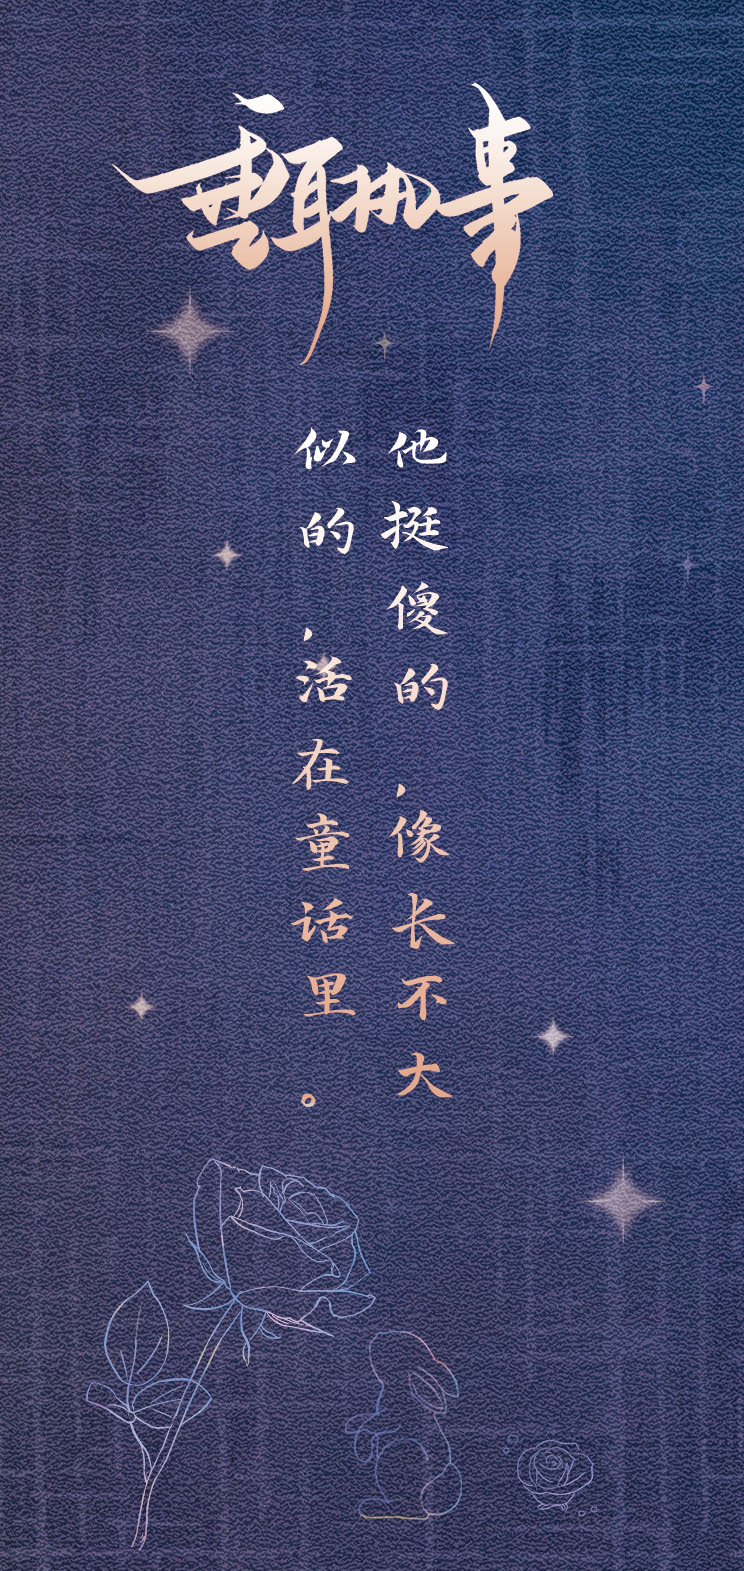 垂耳执事
他挺傻的，像长不大
似的，活在童话里。